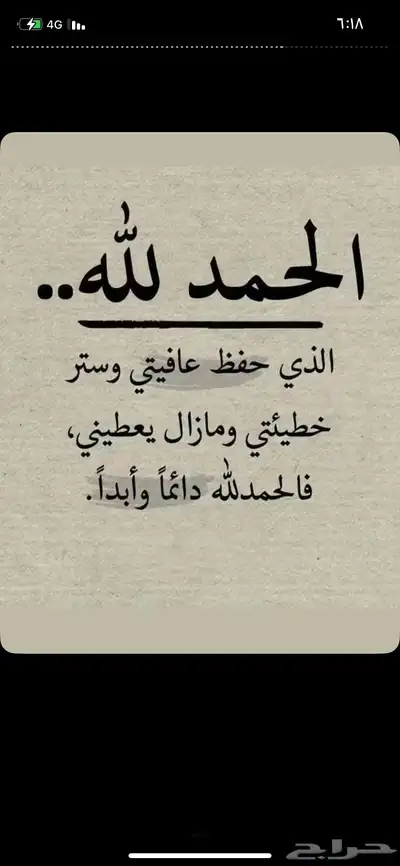 4G
٦:١٨
الحمد لله..
الذي حفظ عافيتي وستر
خطيئتي ومازال يعطيني،
فالحمدلله دائماً وأبداً.
حراج